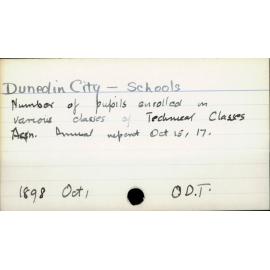 Dunedin City – Schools
Number of pupils enrolled in
various classes of Technical Classes
Assn. Annual report Oct 15, 17.
1898 Oct, O.D.T.